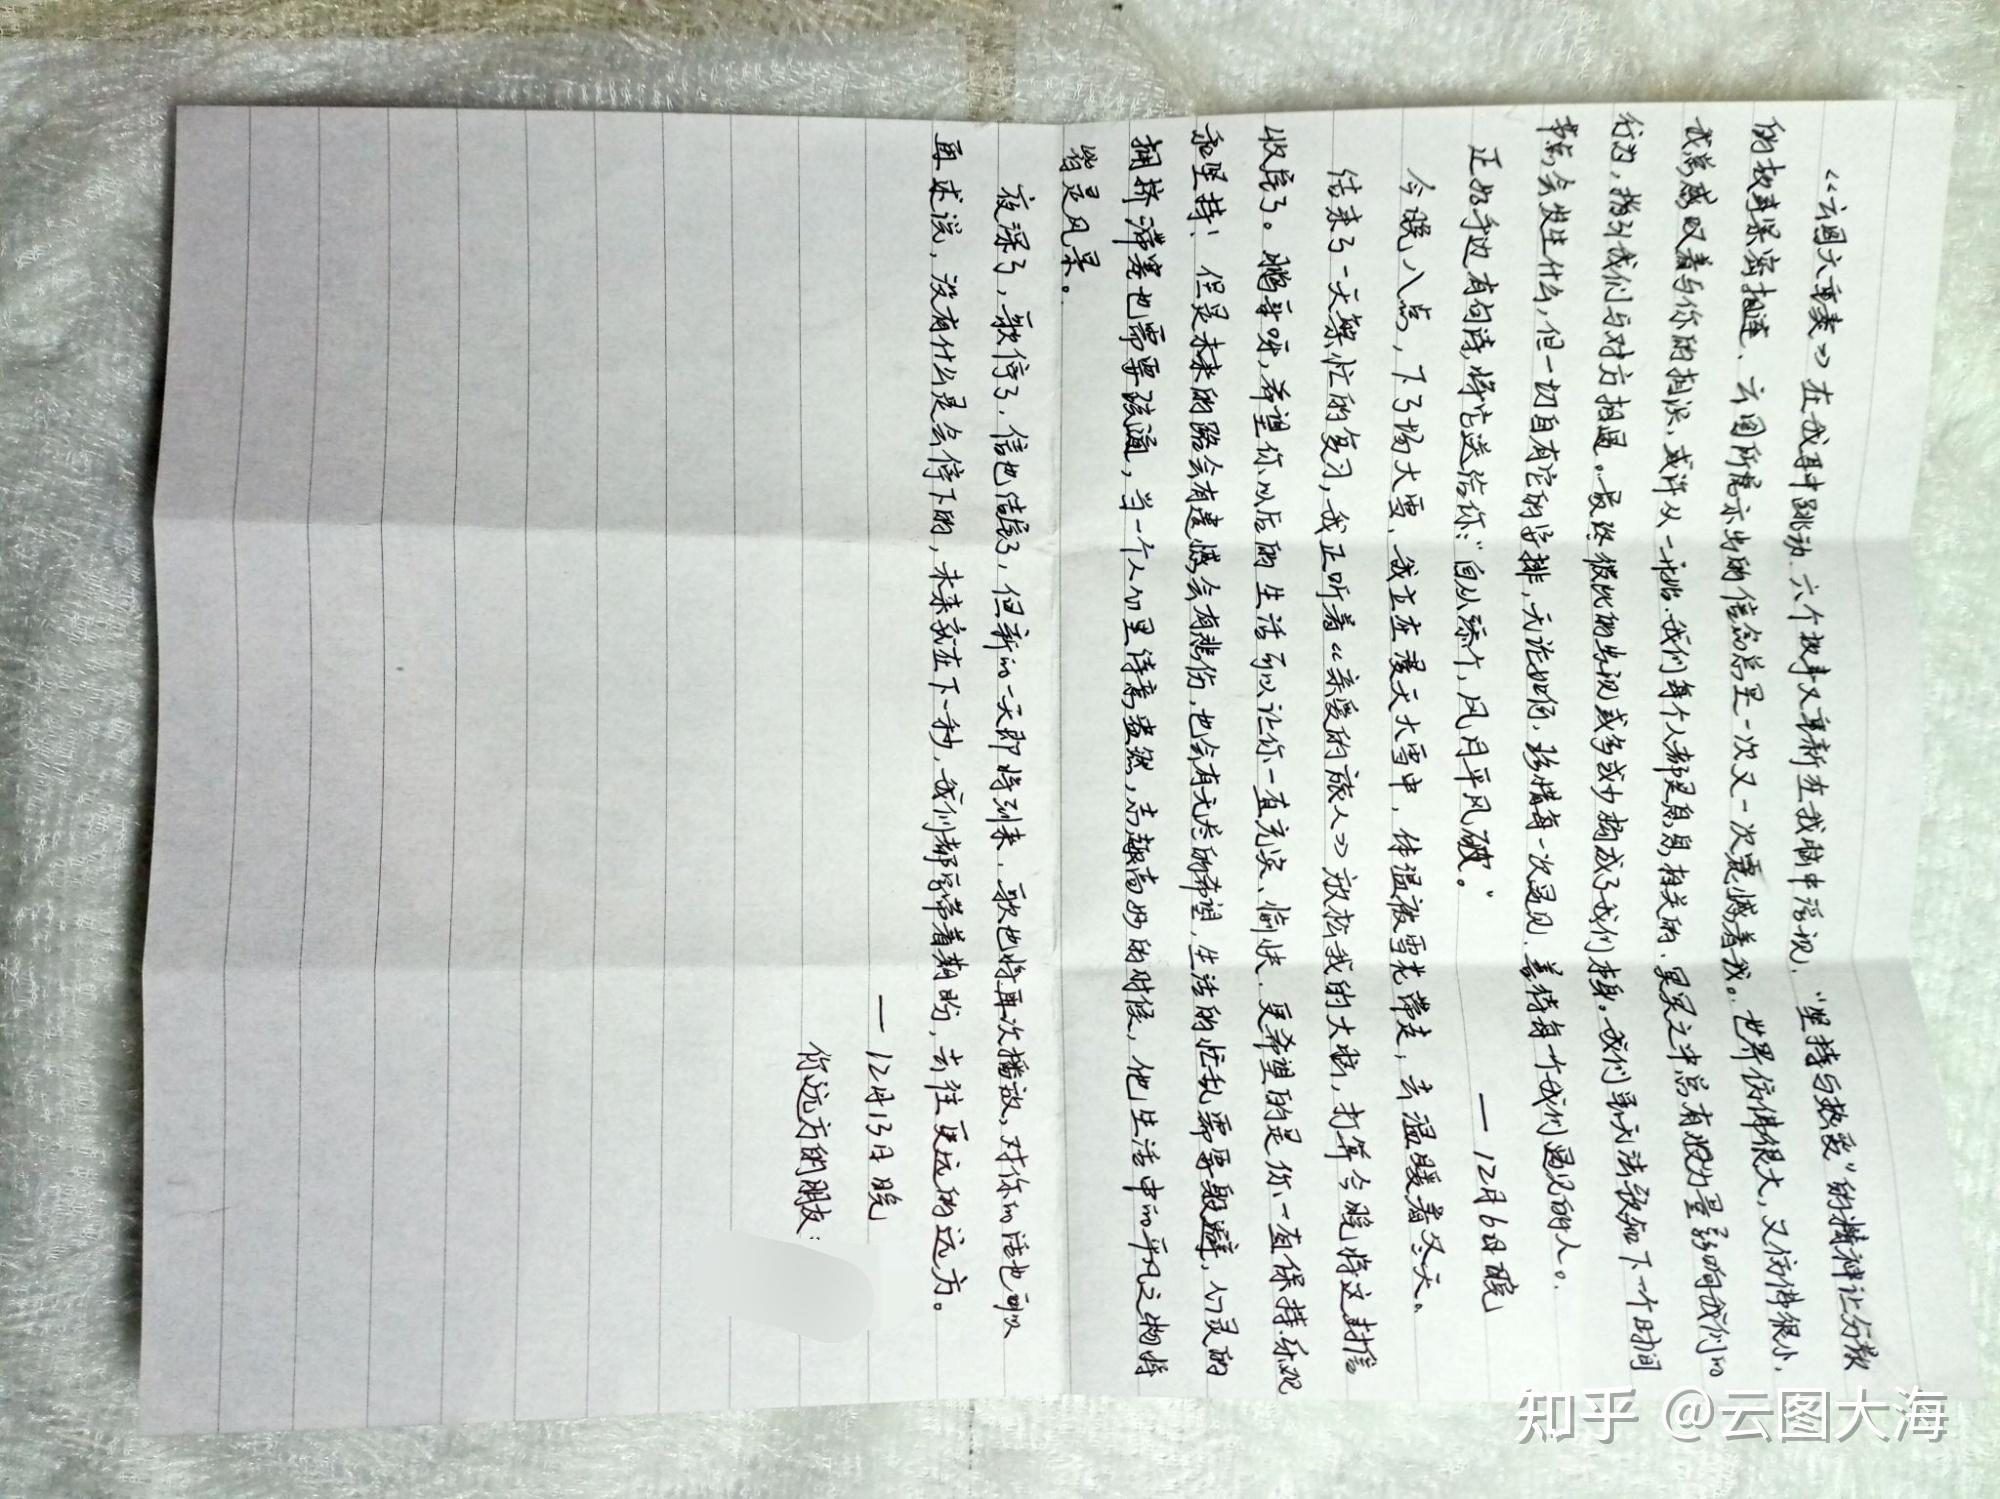 《云图六重奏》在我耳中跳动，六个故事又重新在我脑中浮现，“坚持与热爱”的精神让分散
的故事紧密相连、云图所展示出的信念总是一次又一次震憾着我。世界仿佛很大，又仿佛很小，
我总感叹着与你的相识，或许从一开始，我们每个人都是息息相关的，冥冥之中总有股力量影响我们的
行为，指引我们与对方相遇。最终彼此的出现或多或少构成了我们本身。我们是无法预知下一个时间
节点会发生什么，但一切自有它的安排，无论如何，珍惜每一次遇见，善待每个我们遇见的人。
正好手边有句诗，将它送给你：“自从添个，风月平风破。”
——12月6日晚
今晚八点，下了场大雪，我立在漫天大雪中，体温被雪花带走，去温暖着冬天。
结束了一天繁忙的复习，我正听着《亲爱的旅人》放松我的大脑，打算今晚将这封信
收尾了。鹏哥呀，希望你以后的生活可以让你一直充实、愉快，更希望的是你一直保持乐观
和坚持，但是未来的路会有遗憾会有悲伤，也会有无尽的希望，生活的忙乱需要躲避，心灵的
拥挤滞塞也需要疏通，当一个人心里诗意盎然，志趣高妙的时候，他生活中的平凡之物将
皆是风景。
夜深了，歌停了，信也结尾了，但新的一天即将到来，歌也将再次播放，对你的话也可以
再述说，没有什么是会停下的，未来就在下一秒，我们都会带着期盼，去往更远的远方。
——12月13日晚
你远方的朋友：
知乎 @云图大海